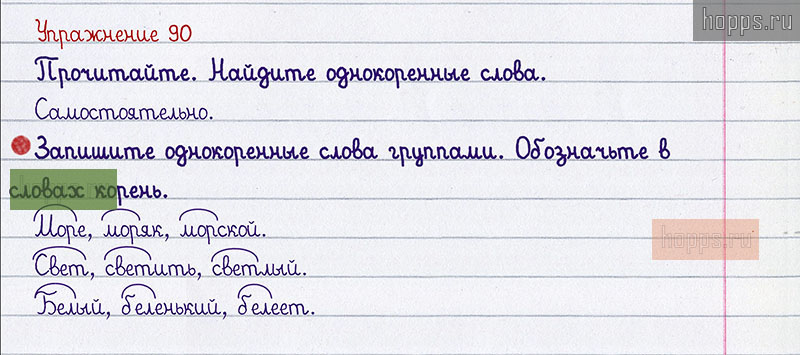 hopps.ru
Упражнение 90
Прочитайте. Найдите однокоренные слова.
Самостоятельно.
Запишите однокоренные слова группами. Обозначьте в
словах корень.
Море, моряк, морской.
hopps.ru
Свет, светить, светлый.
Белый, беленький, белеет.